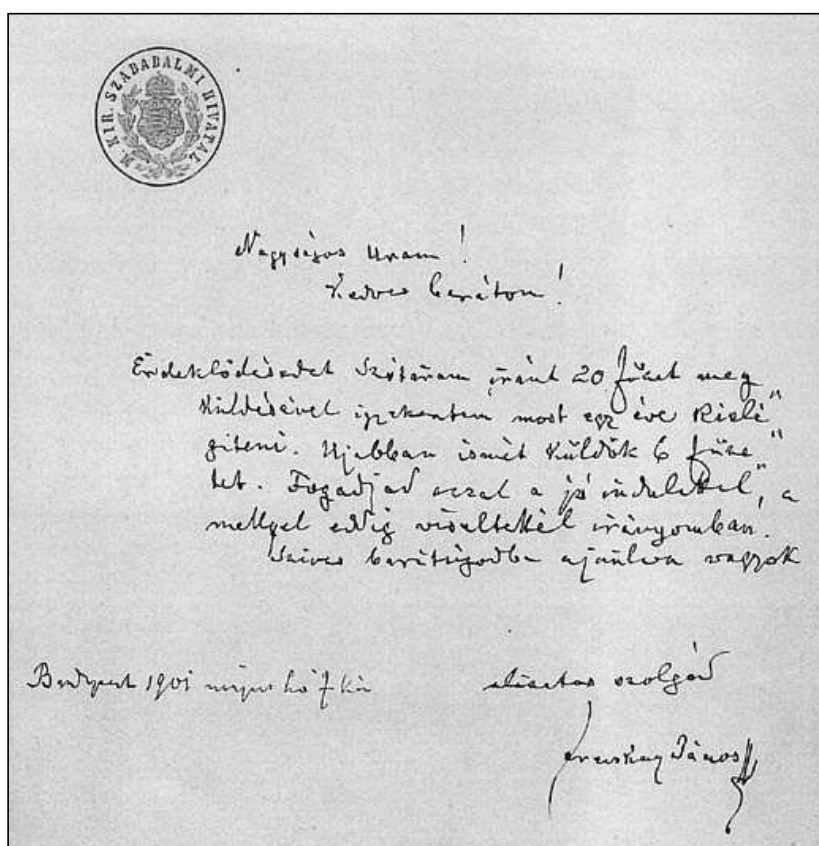 M. KIR. SZABABALMI HIVATAL
Nagyságos Uram!
Kedves barátom!
Érdeklődésedet Szótáram iránt 20 füzet meg
küldésével igyekeztem most egy éve kielé„
gíteni. Ujabban ismét küldök 6 füze„
tet. Fogadjad azzal a jó indulattal, a
mellyel eddig viseltettél irányomban.
Szives barátságodba ajánlva vagyok
Budapest 1901 május hó 7kén
alázatos szolgád
János